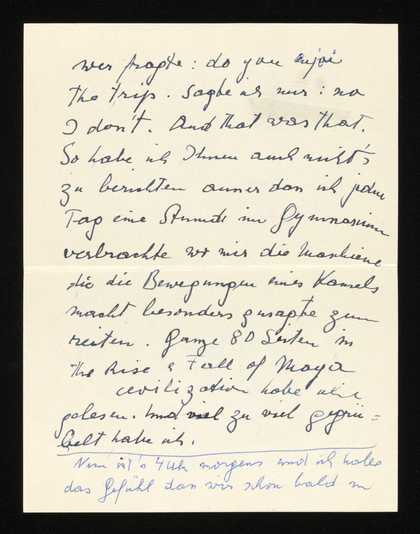 wer fragte: do you enjoi
the trip. Sagte ich nur: no
I don't. And that was that.
So habe ich Ihnen auch nichts
zu berichten ausser dass ich jeden
Tag eine Stunde im Gymnasium
verbrachte wo mir die Maschiene
die die Bewegungen eines Kamels
macht besonders zusagte zum
reiten. Ganze 80 Seiten in
the Rise & Fall of Maya
civilization habe ich
gelesen. Und viel zu viel gegrü=
belt habe ich.
Nun ist's 4 Uhr morgens und ich habe
das Gefühl dass wir schon bald in